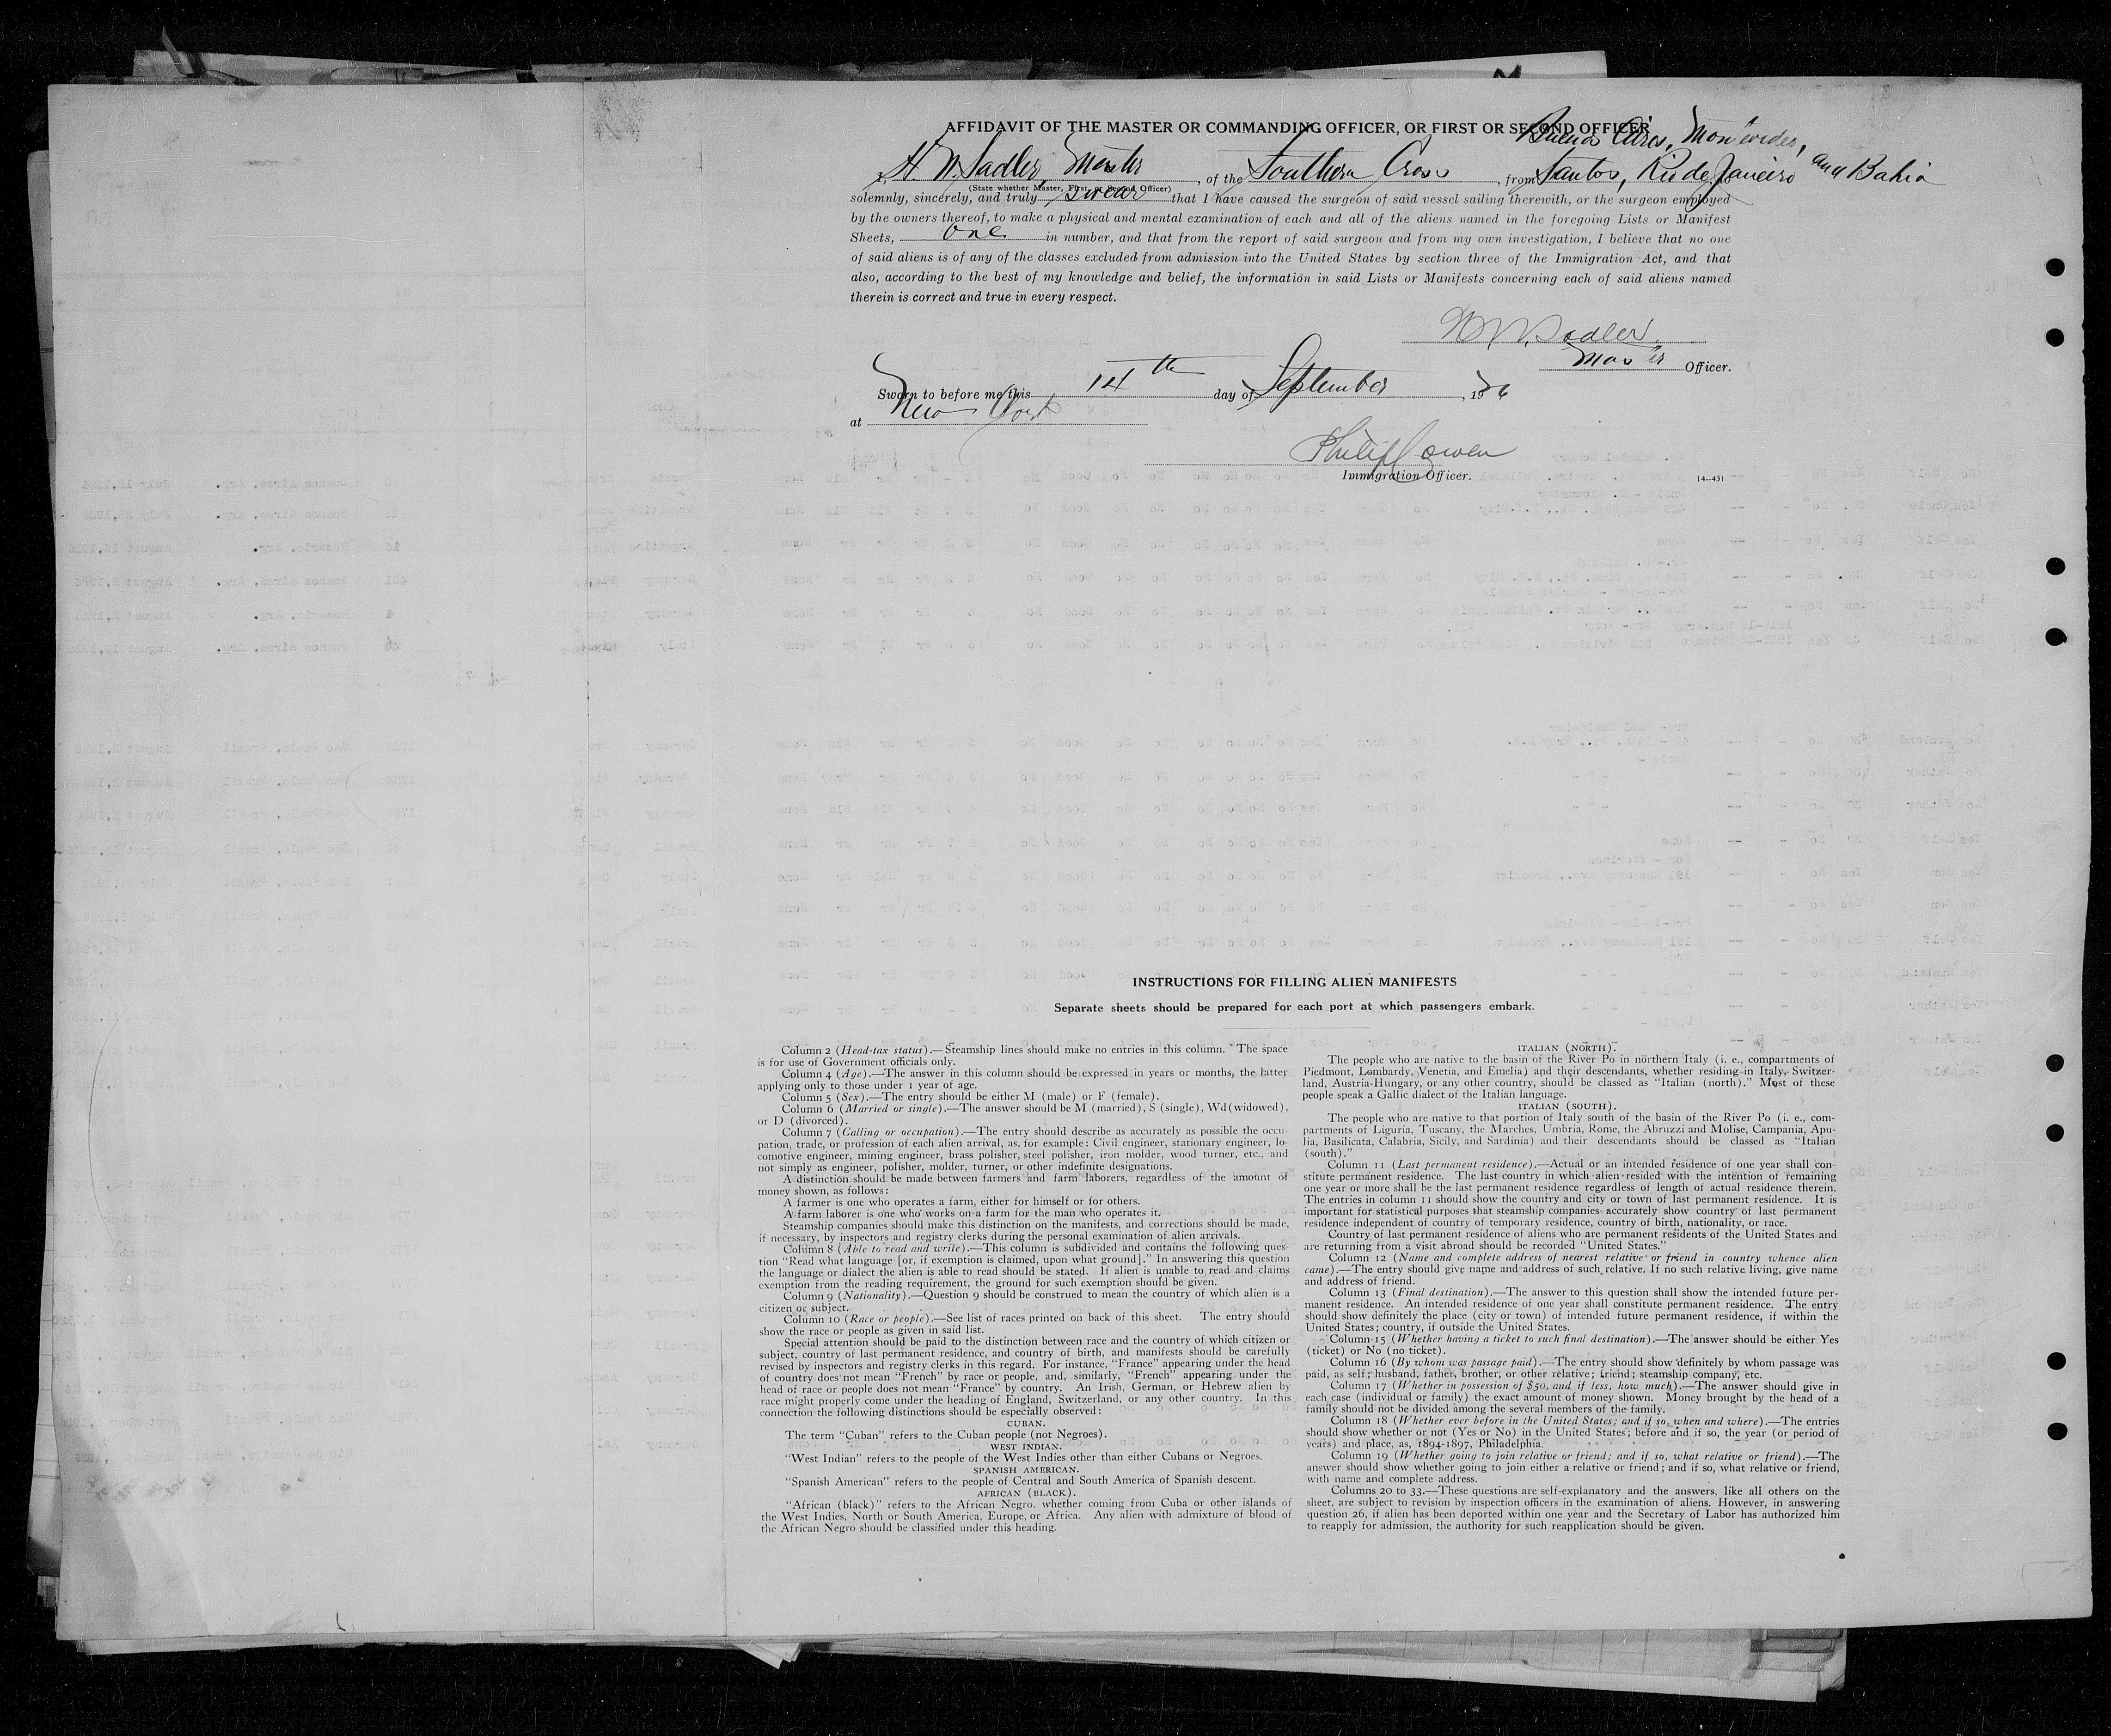 AFFIDAVIT OF THE MASTER OR COMMANDING OFFICER, OR FIRST OR SECOND OFFICER
Buenos Aires, Montevideo,
I, H. W. Sadler, Master, of the Southern Cross, from Santos, Rio de Janeiro and Bahia
(State whether Master, First, or Second Officer)
solemnly, sincerely, and truly swear that I have caused the surgeon of said vessel sailing therewith, or the surgeon employed
by the owners thereof, to make a physical and mental examination of each and all of the aliens named in the foregoing Lists or Manifest
Sheets, one in number, and that from the report of said surgeon and from my own investigation, I believe that no one
of said aliens is of any of the classes excluded from admission into the United States by section three of the Immigration Act, and that
also, according to the best of my knowledge and belief, the information in said Lists or Manifests concerning each of said aliens named
therein is correct and true in every respect.
Sadler
Master Officer.
Sworn to before me this 14th day of September, 1926
at New York
Philip Cowen
Immigration Officer.
14-431
INSTRUCTIONS FOR FILLING ALIEN MANIFESTS
Separate sheets should be prepared for each port at which passengers embark.
Column 2 (Head-tax status).—Steamship lines should make no entries in this column. The space
is for use of Government officials only.
Column 4 (Age).—The answer in this column should be expressed in years or months, the latter
applying only to those under 1 year of age.
Column 5 (Sex).—The entry should be either M (male) or F (female).
Column 6 (Married or single).—The answer should be M (married), S (single), Wd (widowed),
or D (divorced).
Column 7 (Calling or occupation).—The entry should describe as accurately as possible the occu-
pation, trade, or profession of each alien arrival, as, for example: Civil engineer, stationary engineer, lo-
comotive engineer, mining engineer, brass polisher, steel polisher, iron molder, wood turner, etc., and
not simply as engineer, polisher, molder, turner, or other indefinite designations.
A distinction should be made between farmers and farm laborers, regardless of the amount of
money shown, as follows:
A farmer is one who operates a farm, either for himself or for others.
A farm laborer is one who works on a farm for the man who operates it.
Steamship companies should make this distinction on the manifests, and corrections should be made,
if necessary, by inspectors and registry clerks during the personal examination of alien arrivals.
Column 8 (Able to read and write).—This column is subdivided and contains the following ques-
tion "Read what language [or, if exemption is claimed, upon what ground]." In answering this question
the language or dialect the alien is able to read should be stated. If alien is unable to read and claims
exemption from the reading requirement, the ground for such exemption should be given.
Column 9 (Nationality).—Question 9 should be construed to mean the country of which alien is a
citizen or subject.
Column 10 (Race or people).—See list of races printed on back of this sheet. The entry should
show the race or people as given in said list.
Special attention should be paid to the distinction between race and the country of which citizen or
subject, country of last permanent residence, and country of birth, and manifests should be carefully
revised by inspectors and registry clerks in this regard. For instance, "France" appearing under the head
of country does not mean "French" by race or people, and, similarly, "French" appearing under the
head of race or people does not mean "France" by country. An Irish, German, or Hebrew alien by
race might properly come under the heading of England, Switzerland, or any other country. In this
connection the following distinctions should be especially observed:
CUBAN.
The term "Cuban" refers to the Cuban people (not Negroes).
WEST INDIAN.
"West Indian" refers to the people of the West Indies other than either Cubans or Negroes.
SPANISH AMERICAN.
"Spanish American" refers to the people of Central and South America of Spanish descent.
AFRICAN (BLACK).
"African (black)" refers to the African Negro, whether coming from Cuba or other islands of
the West Indies, North or South America, Europe, or Africa. Any alien with admixture of blood of
the African Negro should be classified under this heading.
ITALIAN (NORTH).
The people who are native to the basin of the River Po in northern Italy (i. e., compartments of
Piedmont, Lombardy, Venetia, and Emelia) and their descendants, whether residing in Italy, Switzer-
land, Austria-Hungary, or any other country, should be classed as "Italian (north)." Most of these
people speak a Gallic dialect of the Italian language.
ITALIAN (SOUTH).
The people who are native to that portion of Italy south of the basin of the River Po (i. e., com-
partments of Liguria, Tuscany, the Marches, Umbria, Rome, the Abruzzi and Molise, Campania, Apu-
lia, Basilicata, Calabria, Sicily, and Sardinia) and their descendants should be classed as "Italian
(south)."
Column 11 (Last permanent residence).—Actual or an intended residence of one year shall con-
stitute permanent residence. The last country in which alien resided with the intention of remaining
one year or more shall be the last permanent residence regardless of length of actual residence therein.
The entries in column 11 should show the country and city or town of last permanent residence. It is
important for statistical purposes that steamship companies accurately show country of last permanent
residence independent of country of temporary residence, country of birth, nationality, or race.
Country of last permanent residence of aliens who are permanent residents of the United States and
are returning from a visit abroad should be recorded "United States."
Column 12 (Name and complete address of nearest relative or friend in country whence alien
came).—The entry should give name and address of such relative. If no such relative living, give name
and address of friend.
Column 13 (Final destination).—The answer to this question shall show the intended future per-
manent residence. An intended residence of one year shall constitute permanent residence. The entry
should show definitely the place (city or town) of intended future permanent residence, if within the
United States; country, if outside the United States.
Column 15 (Whether having a ticket to such final destination).—The answer should be either Yes
(ticket) or No (no ticket).
Column 16 (By whom was passage paid).—The entry should show definitely by whom passage was
paid, as self; husband, father, brother, or other relative; friend; steamship company, etc.
Column 17 (Whether in possession of $50, and if less, how much).—The answer should give in
each case (individual or family) the exact amount of money shown. Money brought by the head of a
family should not be divided among the several members of the family.
Column 18 (Whether ever before in the United States; and if so, when and where).—The entries
should show whether or not (Yes or No) in the United States; before and if so, the year (or period of
years) and place, as, 1894-1897, Philadelphia.
Column 19 (Whether going to join relative or friend; and if so, what relative or friend).—The
answer should show whether going to join either a relative or friend; and if so, what relative or friend,
with name and complete address.
Columns 20 to 33.—These questions are self-explanatory and the answers, like all others on the
sheet, are subject to revision by inspection officers in the examination of aliens. However, in answering
question 26, if alien has been deported within one year and the Secretary of Labor has authorized him
to reapply for admission, the authority for such reapplication should be given.